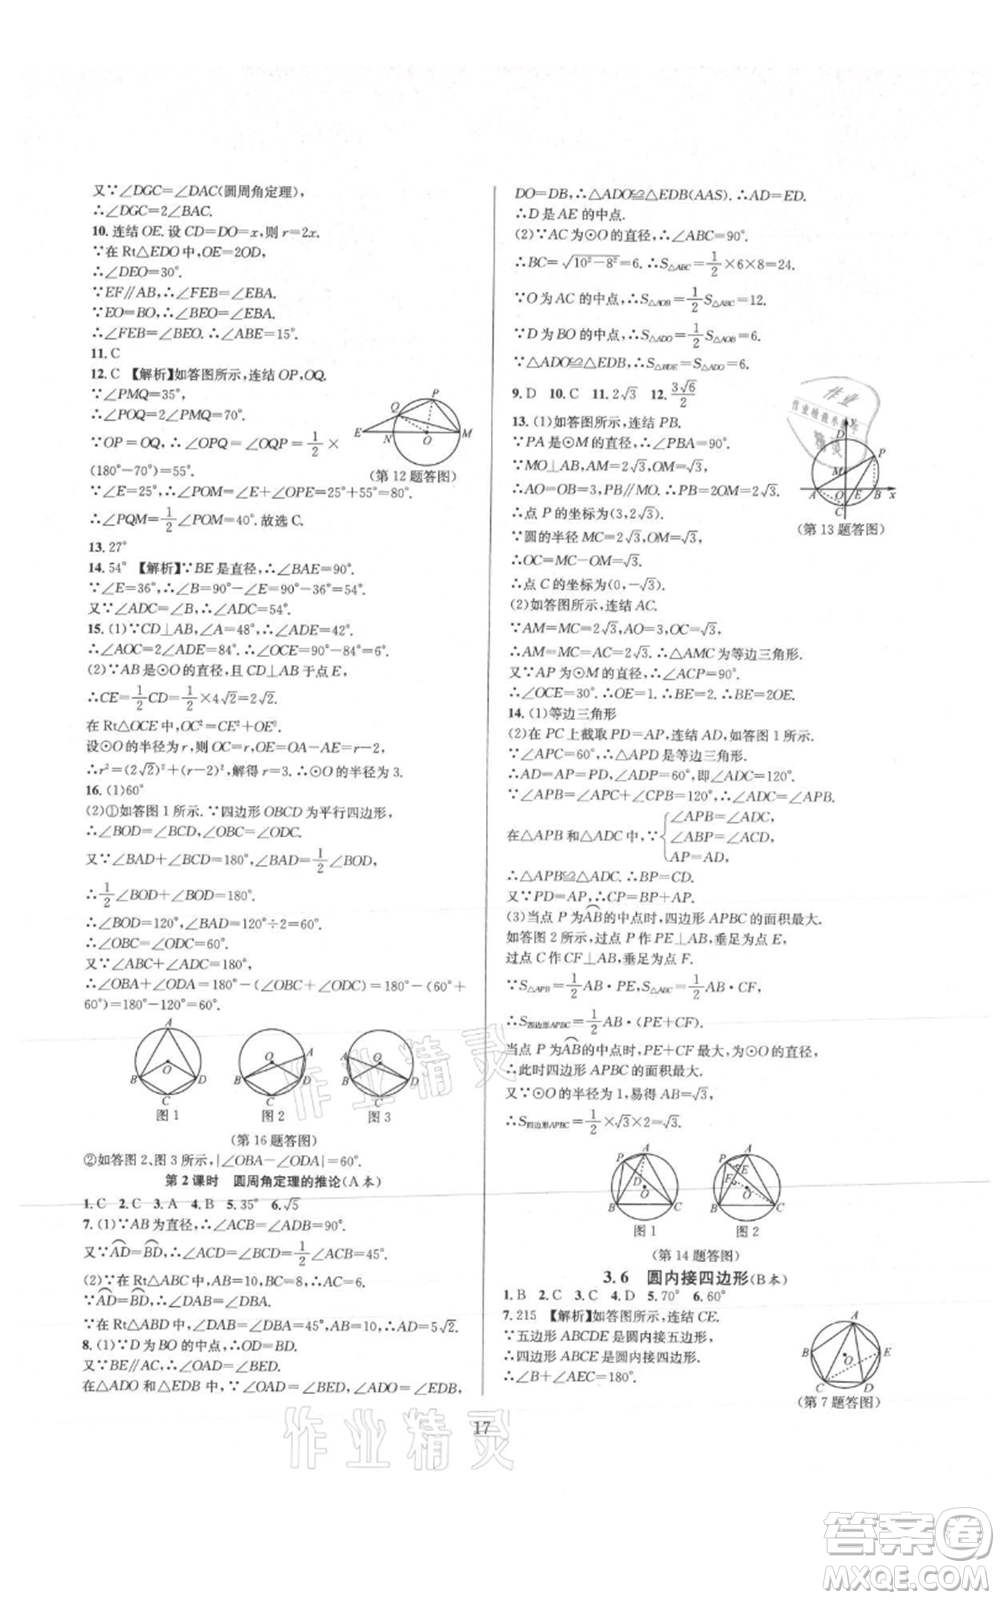 又∵∠DGC=∠DAC(圆周角定理),
∴∠DGC=2∠BAC.
10. 连结 OE. 设 CD=DO=x,则 r=2x.
∵在 Rt△EDO 中,OE=2OD,
∴∠DEO=30°.
∵EF∥AB,∴∠FEB=∠EBA.
∵EO=BO,∴∠BEO=∠EBA.
∴∠FEB=∠BEO.∴∠ABE=15°.
11. C
12. C 【解析】如答图所示,连结 OP,OQ.
∵∠PMQ=35°,
∴∠POQ=2∠PMQ=70°.
∵OP=OQ,∴∠OPQ=∠OQP=1/2×
(180°-70°)=55°.
(第 12 题答图)
∵∠E=25°,∴∠POM=∠E+∠OPE=25°+55°=80°.
∴∠PQM=1/2∠POM=40°.故选 C.
13. 27°
14. 54° 【解析】∵BE是直径,∴∠BAE=90°.
∵∠E=36°,∴∠B=90°-∠E=90°-36°=54°.
又∵∠ADC=∠B,∴∠ADC=54°.
15. (1)∵CD⊥AB,∠A=48°,∴∠ADE=42°.
∴∠AOC=2∠ADE=84°.∴∠OCE=90°-84°=6°.
(2)∵AB 是⊙O 的直径,且 CD⊥AB 于点 E,
∴CE=1/2CD=1/2×4√2=2√2.
在 Rt△OCE 中,OC²=CE²+OE².
设⊙O 的半径为 r,则 OC=r,OE=AE-r=4-r... 
∴r²=(2√2)²+(r-2)²,解得 r=3.∴⊙O 的半径为 3.
16. (1)60°
(2)①如答图 1 所示.∵四边形 OBCD 为平行四边形,
∴∠BOD=∠BCD,∠OBC=∠ODC.
又∵∠BAD+∠BCD=180°,∠BAD=1/2∠BOD,
∴1/2∠BOD+∠BOD=180°.
∴∠BOD=120°,∠BAD=60°.
∴∠OBC=∠ODC=60°.
又∵∠ABC+∠ADC=180°,
∴∠OBA+∠ODA=180°-(∠OBC+∠ODC)=180°-(60°+
60°)=60°.
图 1
图 2
图 3
(第 16 题答图)
②如答图 2、图 3 所示,|∠OBA-∠ODA|=60°.
第 2 课时 圆周角定理的推论(A 本)
1. C 2. C 3. A 4. B 5. 35° 6. √5
7. (1)∵AB 为直径,∴∠ACB=∠ADB=90°.
又∵AD=BD,∴∠ACD=∠BCD=1/2∠ACB=45°.
(2)∵在 Rt△ABC 中,
∵AD=BD,∴AD=BD.
8. (1)∵D 为 BO 的中点,∴OD=DB.
∵BE∥AC,∴∠OAD=∠BED.
在△ADO 和△EDB 中,∵∠OAD=∠BED,∠ADO=∠EDB,
DO=DB,∴△ADO≌△EDB(AAS). ∴AD=ED.
∴D 是 AE 的中点.
(2)∵AC 为⊙O 的直径,∴∠ABC=90°.
∴BC=√(10²-8²)=6.∴S△ABC=1/2×6×8=24.
∵O 为 AC 的中点,∴S△AOB=1/2S△ABC=12.
∵D 为 BO 的中点,∴S△ADO=1/2S△AOB=6.
∵△ADO≌△EDB,∴S△BDE=S△ADO=6.
9. D 10. C 11. 2√3 12. 3√6/2
13. (1)如答图所示,连结 PB.
∵PA 是⊙M 的直径,∴∠PBA=90°.
∵MO⊥AB,∴MO∥PB.
∴AO=OB=3,PB=2MO=2√3.
∴点 P 的坐标为(3,2√3).
∵圆的半径 MC=2√3,OM=√3,
∴OC=MC-OM=√3.
∴点 C 的坐标为(0,-√3).
(第 13 题答图)
(2)如答图所示,连结 AC.
∵AM=MC=2√3,AO=3,OC=√3,
∴AM=MC=AC=2√3.∴△AMC 为等边三角形.
又∵AP 为⊙M 的直径,∴∠ACP=90°.
∴∠OCE=30°.∴OE=1.∴BE=2.
14. (1)等边三角形
(2)在 PC 上截取 PD=AP,连结 AD,如答图 1 所示.
∵∠APC=60°,∴△APD 是等边三角形.
∴AD=AP=PD,∠ADP=60°,即∠ADC=120°.
∵∠APB=∠APC+∠CPB=120°,∴∠APB=∠ADC.
在△APB 和△ADC 中,∵
∠APB=∠ADC,
∠ABP=∠ACD,
AP=AD,
∴△APB≌△ADC.∴BP=CD.
又∵PD=AP,∴PC=BP+AP.
(3)当点 P 为AB的中点时,四边形 APBC 的面积最大.
如答图 2 所示,过点 P 作 PE⊥AB,垂足为点 E,
过点 C 作 CF⊥AB,垂足为点 F.
∵S△APB=1/2AB·PE,S△ABC=1/2AB·CF,
∴S四边形APBC=1/2AB·(PE+CF).
当点 P 为AB的中点时,PE+CF 最大,为⊙O 的直径,
∴此时四边形 APBC 的面积最大.
又∵⊙O 的半径为 1,易得 AB=√3,
∴S四边形APBC=1/2×√3×2=√3.
图 1
图 2
(第 14 题答图)
3. 6 圆内接四边形(B 本)
1. B 2. C 3. C 4. D 5. 70° 6. 60°
7. 215 【解析】如答图所示,连结 CE.
∵五边形 ABCDE 是圆内接五边形,
∴四边形 ABCE 是圆内接四边形.
∴∠B+∠AEC=180°.
(第 7 题答图)
17
作业精灵
作业精灵
答案圈
MXQE.COM